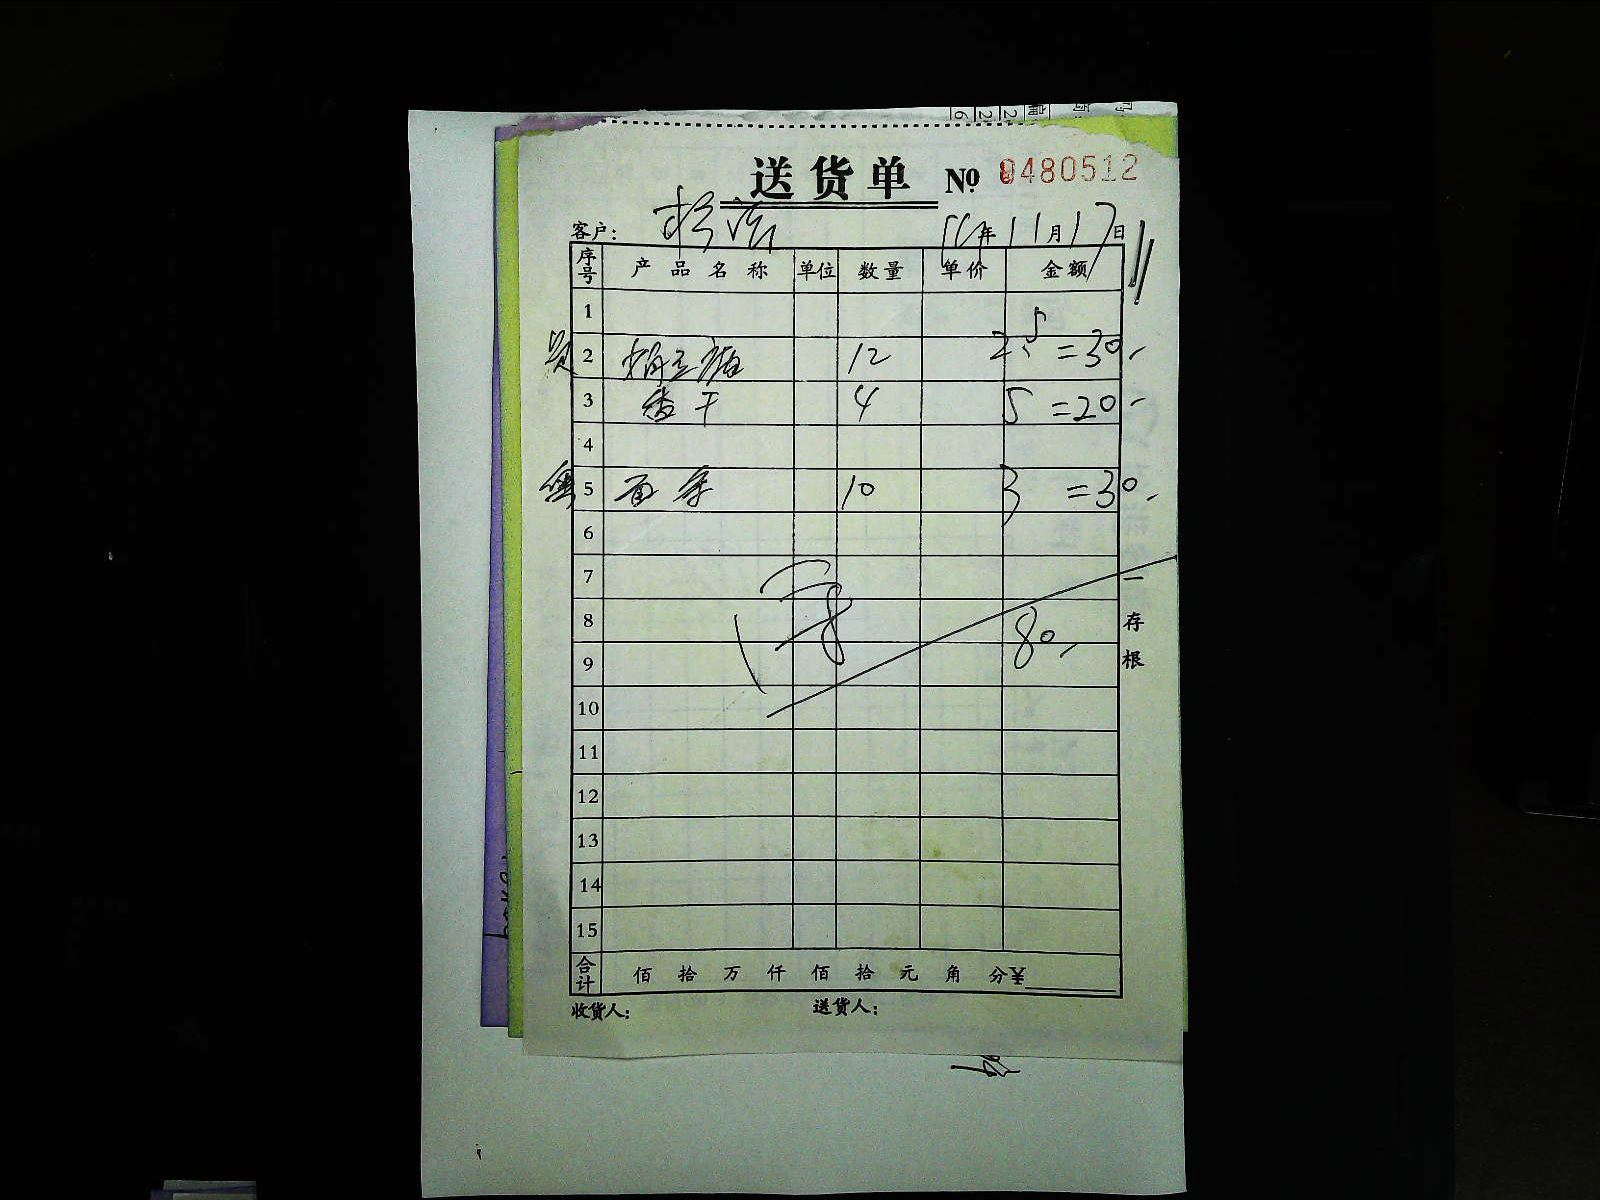 送货单 № 9480512
客户: 年 11月17日
序号 产品名称 单位 数量 单价 金额
1
2 12 2.5 =30-
3 香干 4 5 =20-
4
5 面条 10 3 =30-
6
7
8 80-
9
10
11
12
13
14
15
一存根
合计 佰 拾 万 仟 佰 拾 元 角 分¥
收货人: 送货人: